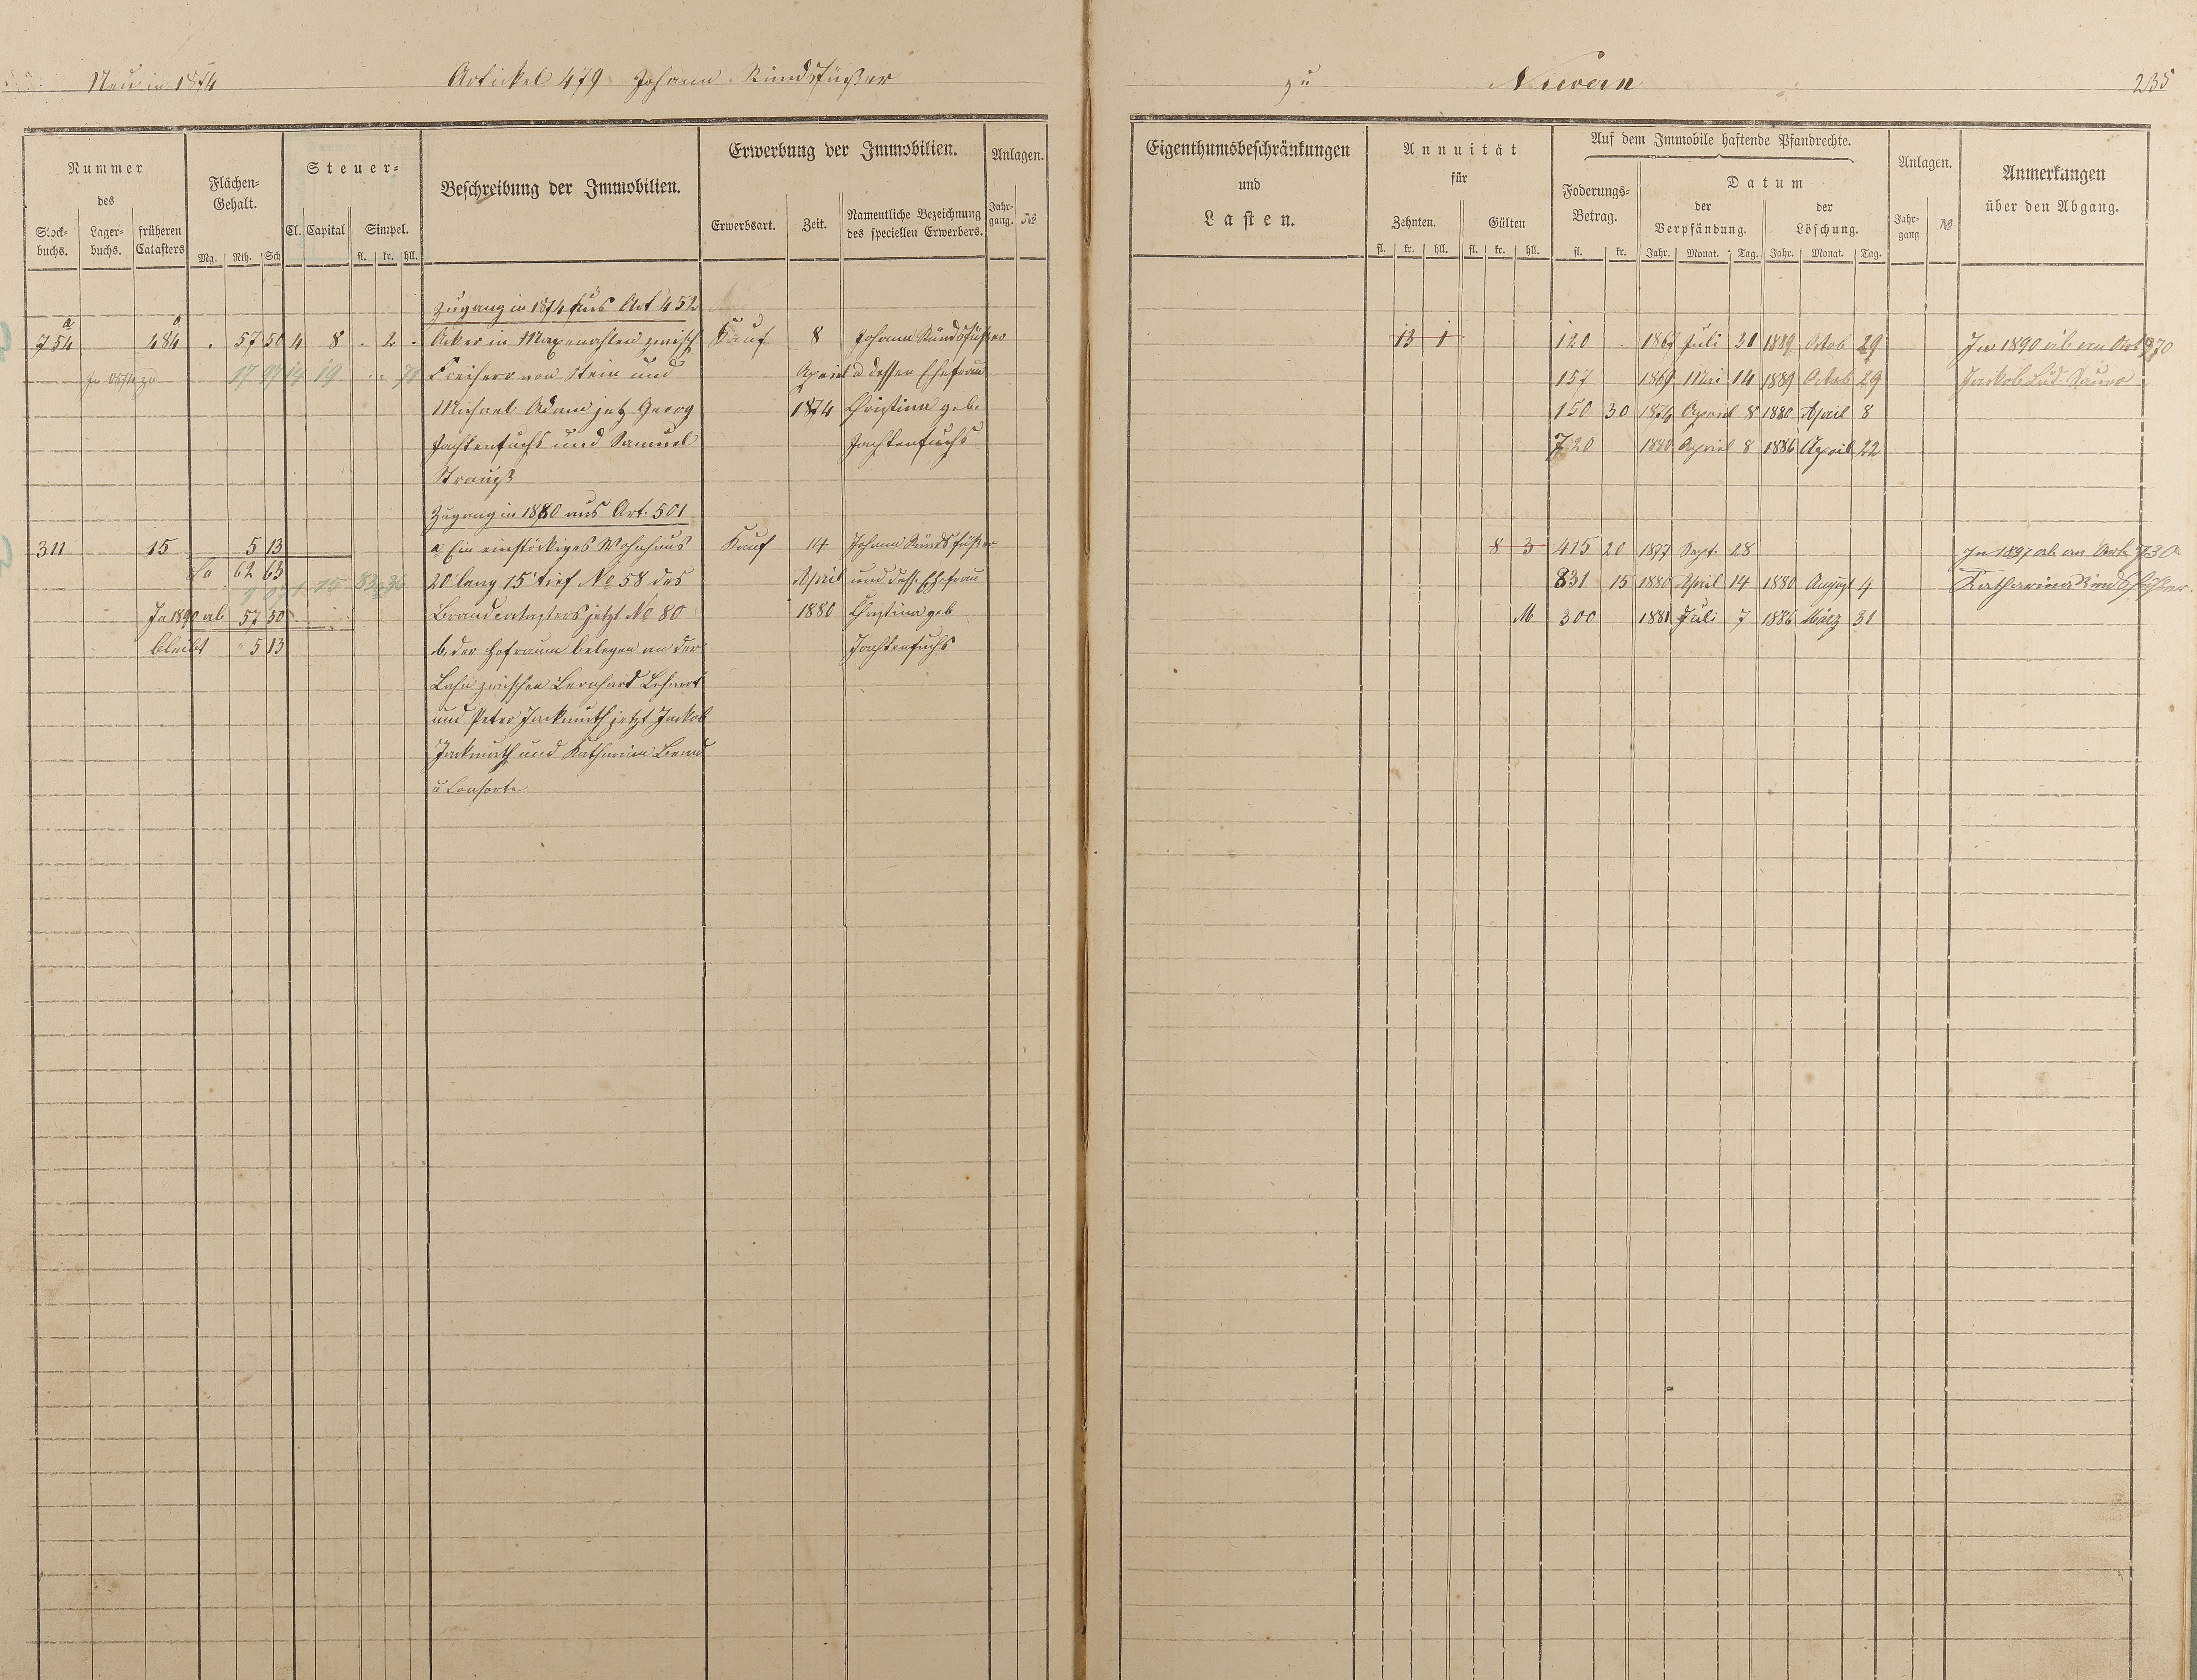 Neu in 1874
Artickel 479 Johann Rindsfüßer
zu Nievern 235
Nummer
des
Stock-
buchs.
Lager-
buchs.
früheren
Catasters
Flächen-
Gehalt.
Mg. Rth. Sch
Steuer-
Cl. Capital Simpel.
fl. kr. hll.
Beschreibung der Immobilien.
Erwerbung der Immobilien.
Erwerbsart. Zeit.
Namentliche Bezeichnung
des speciellen Erwerbers.
Anlagen.
Jahr-
gang. №
Eigenthumsbeschränkungen
und
Lasten.
Annuität
für
Zehnten. Gülten
fl. kr. hll. fl. kr. hll.
Auf dem Immobile haftende Pfandrechte.
Foderungs-
Betrag.
fl. kr.
Datum
der
Verpfändung.
der
Löschung.
Jahr. Monat. Tag. Jahr. Monat. Tag.
Anlagen.
Jahr-
gang №
Anmerkungen
über den Abgang.
Zugang in 1874 aus Art 452
754 a 484 . 57 50 4 8 . 2 . Acker in zwisch Kauf 8 Johann Rindsfüßer 13 1 120 . 1867 Juli 31 1889 Octob 29 In 1890 ab an Art 570
17 97 14 19 Freiherr von Stein und April u dessen Ehefrau 157 1869 Mai 14 1889 Octob 29 Jackob Lud.
Michael Adam jetz Georg 1874 Christina geb. 150 30 1874 April 8 1880 April 8
Jachtenfuchs und Samuel Jachtenfuchs 720 1880 April 8 1886 April 22
Strauß
Zugang in 1880 aus Art. 501
311 15 5 13 a Ein einstöckiges Wohnhaus Kauf 14 Johann Rindsfüßer 8 3 415 20 1877 Sept. 28 In 1897 ab an Art. 730
La 62 63 1 15 20 lang 15' tief No 58 des April und dess. Ehefrau 831 15 1880 April 14 1880 August 4 Katharina Rindsfüßer.
In 1890 ab 57 50 Brandcatasters jetzt No 80 1880 Christina geb M 300 1881 Juli 7 1886 März 31
bleibt " 5 13 b, der Hofraum belegen an der Jachtenfuchs
Lahn zwischen Bernhard Lehnert
und Peter Jackmuth jetzt Jackob
Jackmuth und Katharina
u Consorte